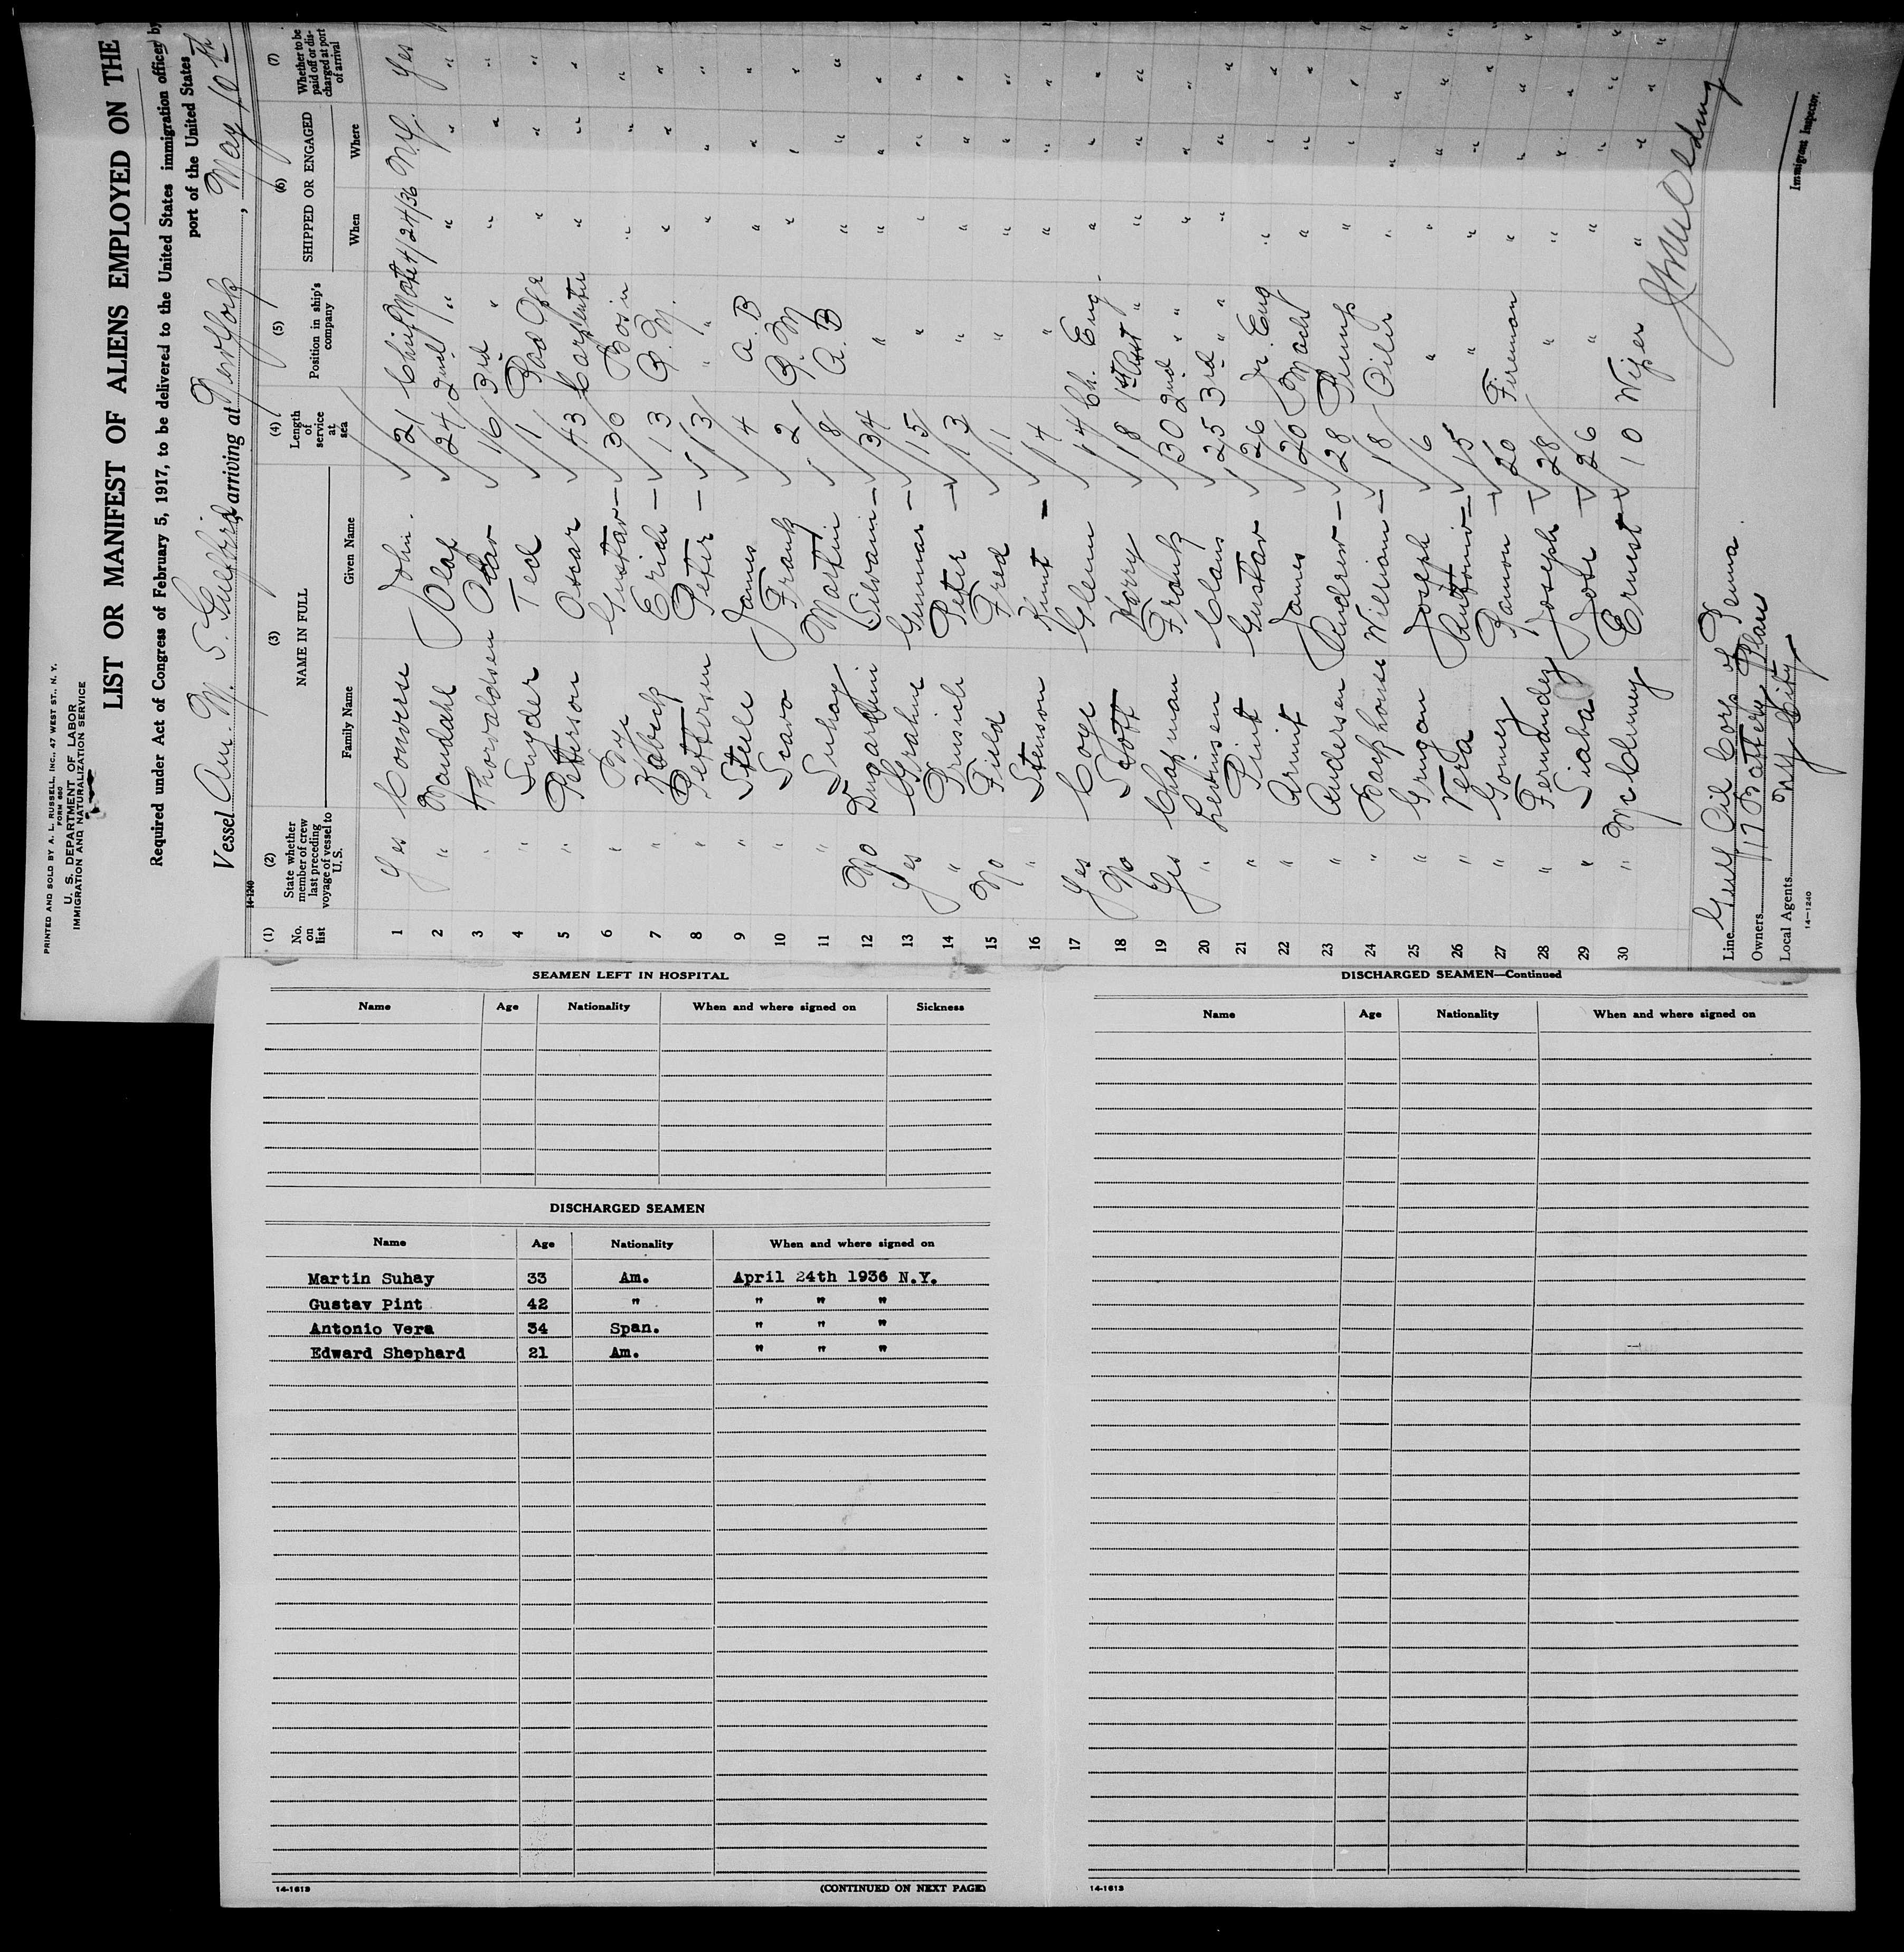 PRINTED AND SOLD BY A. L. RUSSELL, INC., 47 WEST ST., N. Y.
FORM 680
U. S. DEPARTMENT OF LABOR
IMMIGRATION AND NATURALIZATION SERVICE
LIST OR MANIFEST OF ALIENS EMPLOYED ON THE
Required under Act of Congress of February 5, 1917, to be delivered to the United States immigration officer by
port of the United States
Vessel Am. M. S. Gulfbird, arriving at New York, May 10th
14-1240
(1) (2) (3) (4) (5) (6) (7)
No. on list
State whether member of crew last preceding voyage of vessel to U. S.
NAME IN FULL
Family Name Given Name
Length of service at sea
Position in ship's company
SHIPPED OR ENGAGED
When Where
Whether to be paid off or discharged at port of arrival
1 Yes Converse John 21 Chief Mate 4/24/36 N.Y. Yes
2 " Olaf 24 2nd " " " "
3 " Thorvaldsen Odar 16 3rd " " " "
4 " Snyder Ted 11 Rad Ofr " " "
5 " Petterson Oscar 43 Carpenter " " "
6 " By Gustav 30 Bosin " " "
7 " Erich 13 Q. M. " " "
8 " Pettersen Peter 13 " " " " "
9 " Steele James 4 A. B " " "
10 " Scavo Frank 2 Q. M " " "
11 " Suhay Martin 8 A. B " " "
12 No Silvain 34 " " " "
13 Yes Grahne Gunnar 15 " " " "
14 " Prusich Peter 13 " " " "
15 No Field Fred 11 " " " "
16 " Stensson Knut 14 " " " "
17 Yes Coge Glenn 14 Ch. Eng. " " "
18 No Scott Harry 18 1st Asst " " " "
19 Yes Chapman Frank 30 2nd " " " " "
20 " Levinsen Claus 25 3rd " " " " "
21 " Pint Gustav 26 Jr. Eng " " "
22 " Armit James 20 Mach " " "
23 " Andersen Andrew 28 Pump " " "
24 " Backhouse William 18 Oiler " " "
25 " Joseph 6 " " " "
26 " Vera Antonio 15 " " " "
27 " Gomez Ramon 20 Fireman " " "
28 " Fernandez Joseph 28 " " " "
29 " Siaba Jose 26 " " " "
30 " McCluney Ernest 10 Wiper " " "
Line Gulf Oil Corp of Penna.
Owners 17 Battery Place
Local Agents N Y City
14—1240
Immigrant Inspector.
SEAMEN LEFT IN HOSPITAL
Name Age Nationality When and where signed on Sickness
DISCHARGED SEAMEN
Name Age Nationality When and where signed on
Martin Suhay 33 Am. April 24th 1936 N.Y.
Gustav Pint 42 " " " "
Antonio Vera 34 Span. " " "
Edward Shephard 21 Am. " " "
14-1613
(CONTINUED ON NEXT PAGE)
DISCHARGED SEAMEN—Continued
Name Age Nationality When and where signed on
14-1613